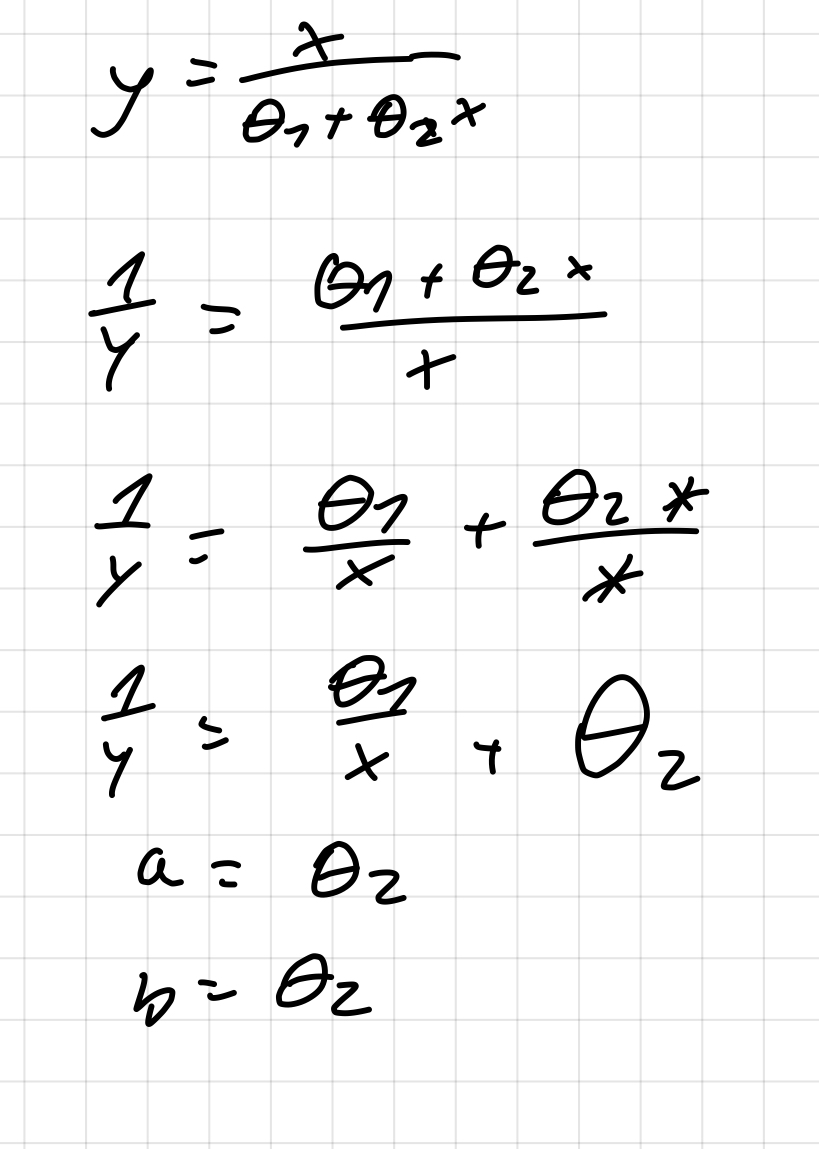 y = x / (θ₁ + θ₂ x)
1/y = (θ₁ + θ₂ x) / x
1/y = θ₁/x + θ₂ x / x
1/y = θ₁/x + θ₂
a = θ₂
b = θ₂